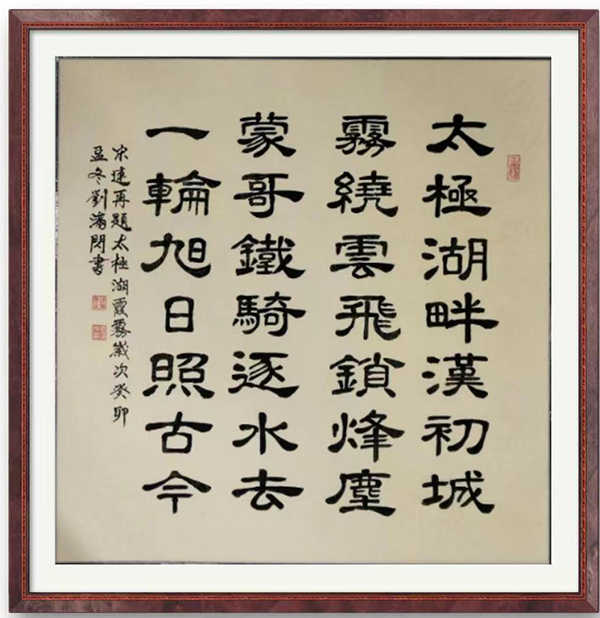 太極湖畔漢初城
霧繞雲飛鎖烽塵
蒙哥鐵騎逐水去
一輪旭日照古今
宋達再題太極湖霞霧歲次癸卯
孟冬劉滿閃書